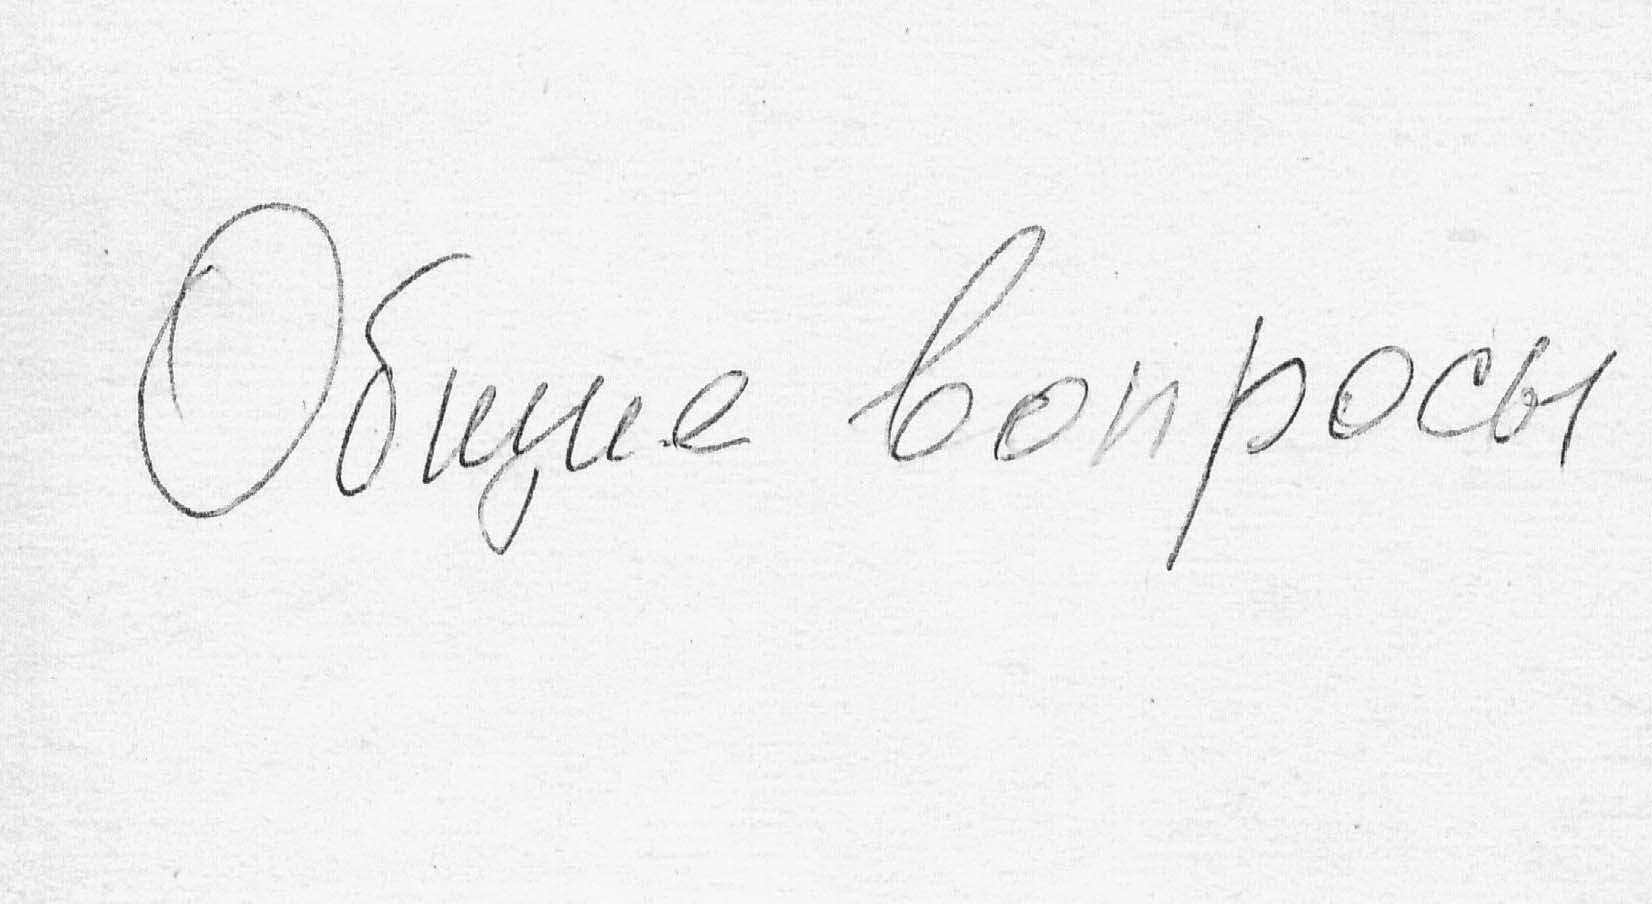 Общие вопросы